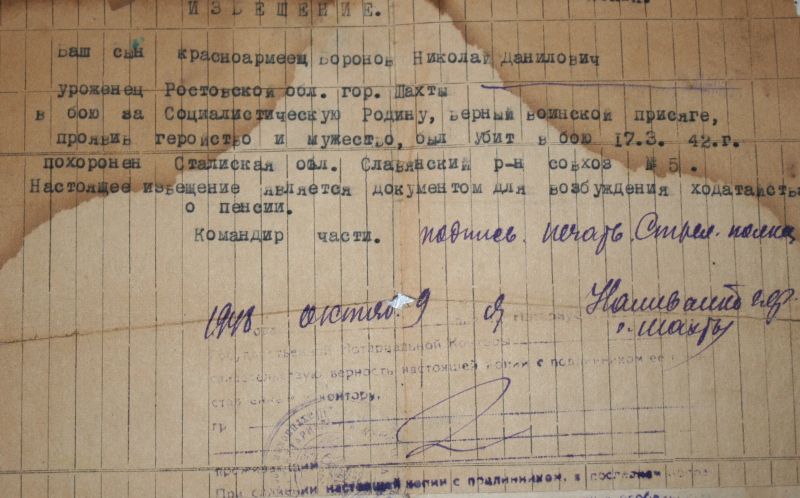 ИЗВЕЩЕНИЕ.
Ваш сын красноармеец Воронов Николай Данилович
уроженец Ростовской обл. гор. Шахты
в бою за Социалистическую Родину, верный воинской присяге,
проявив геройство и мужество, был убит в бою 17.3. 42.г.
похоронен Сталиская обл. Славянский р-н совхоз № 5.
Настоящее извещение является документом для возбуждения ходатайства
о пенсии.
Командир части. подпись. печать. Стрел. полка
1948 октяб. 9 я
г. Шахты
Нотариальной Конторы
верность настоящей копии с подлинником ее
контору.
гр
проживающий
При сличении настоящей копии с подлинником, в последнем